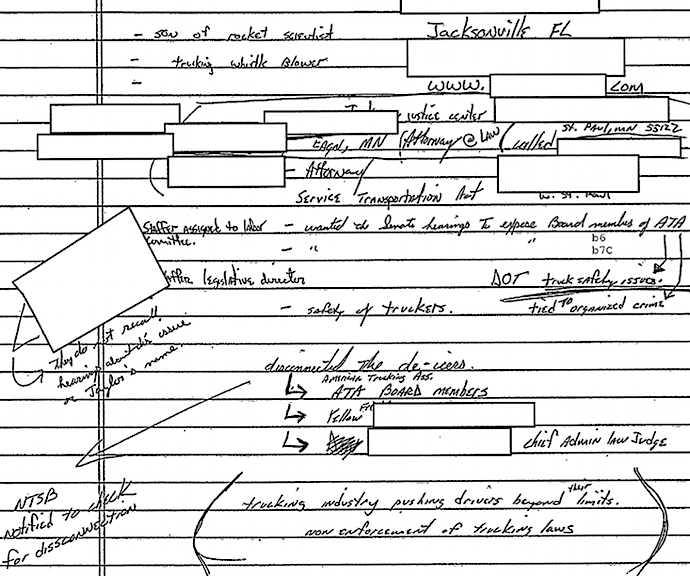 Jacksonville FL
- son of rocket scientist
- trucking whistle Blower
-
www. com
justice center
St. Paul, MN 55122
Eagan, MN (Attorney @ Law called
- Attorney
Service Transportation Act
W. St. Paul
Staffer assigned to labor - wanted to Senate hearings to expose Board member of ATA
committee.
- " "
b6
b7C
staffer legislative director
DOT truck safety issues.
- safety of truckers.
tied to organized crime
They do not recall
hearing about this issue
or Taylor's name.
disconnected the de-icers.
American Trucking Ass.
ATA BOARD MEMBERS
Yellow
chief Admin law Judge
NTSB
notified to check
for dissconnection
trucking industry pushing drivers beyond their limits.
non enforcement of trucking laws